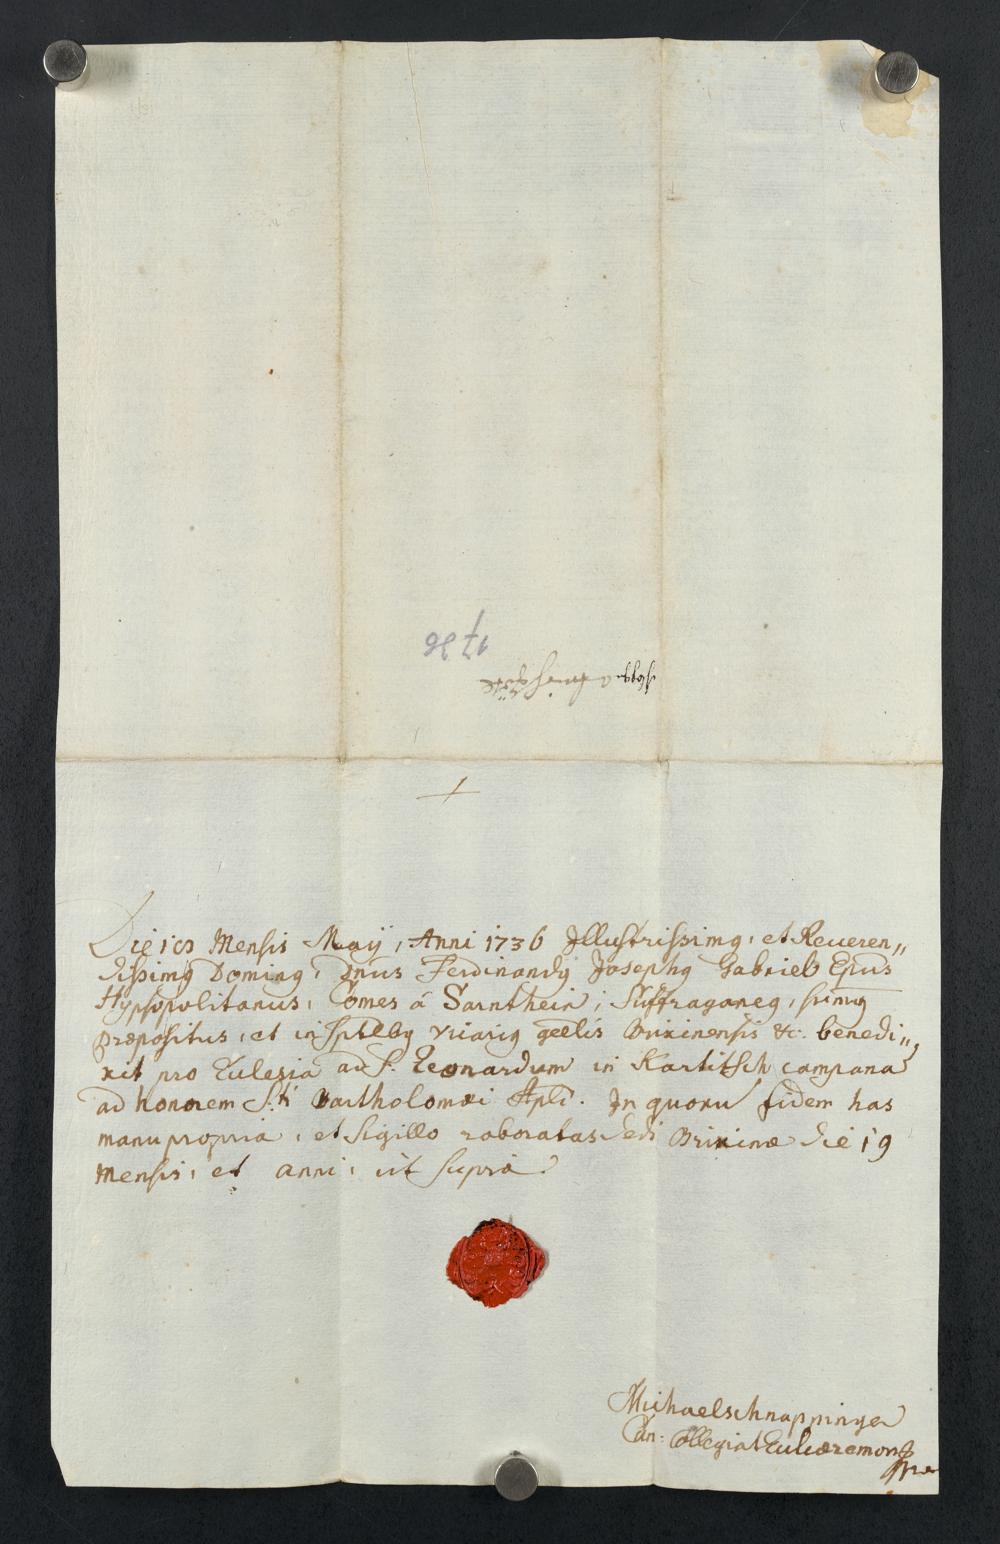 1736
+
Die 19 Mensis Maÿ, Anni 1736 Illustrissimq, et Reueren„
dissimq Dominq, Dnus Ferdinandq Josephq Gabriel Epus
Hypsopolitanus, Comes â Sarnthein, Suffraganeq, sumq
præpositus, et in Sptlbq Vicariq gnlis Brixinensis &c. benedi„
xit pro Eclesia ad S. Leonardum in Kartitsch campana
ad honorem S.ti Bartholomæi Apli. In quoru fidem has
manu propria, et Sigillo roboratas dedi Brixinæ die 19
Mensis, et anni, ut supra.
Michael schnappinger
Can: Collegiat